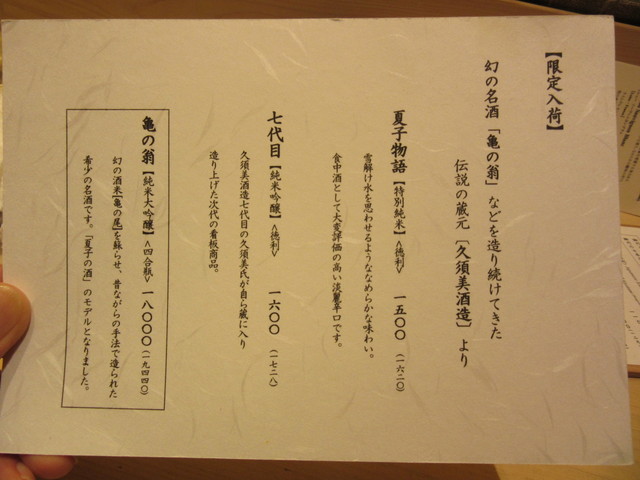 【限定入荷】
幻の名酒「亀の翁」などを造り続けてきた
伝説の蔵元〔久須美酒造〕より
夏子物語【特別純米】<徳利> 一五〇〇(一六二〇)
雪解け水を思わせるようななめらかな味わい。
食中酒として大変評価の高い淡麗辛口です。
七代目【純米吟醸】<徳利> 一六〇〇(一七二八)
久須美酒造七代目の久須美氏が自ら蔵に入り
造り上げた次代の看板商品。
亀の翁【純米大吟醸】<四合瓶> 一八〇〇〇(一九四四〇)
幻の酒米【亀の尾】を蘇らせ、昔ながらの手法で造られた
希少の名酒です。「夏子の酒」のモデルとなりました。